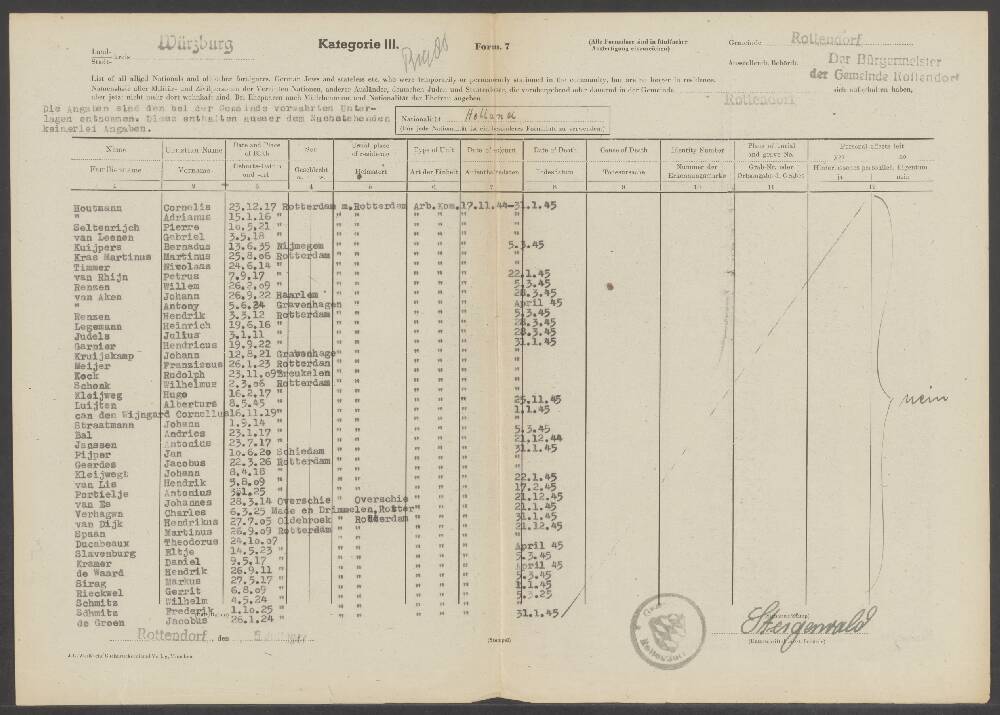 Land-
Stadt- kreis Würzburg
Kategorie III.
Form. 7
(Alle Formulare sind in fünffacher
Ausfertigung einzureichen)
Gemeinde Rottendorf
Ausstellende Behörde Der Bürgermeister
der Gemeinde Rottendorf
List of all allied Nationals and all other foreigners, German Jews and stateless etc. who were temporarily or permanently stationed in the community, but are no longer in residence.
Namensliste aller Militär- und Zivilpersonen der Vereinten Nationen, anderer Ausländer, deutschen Juden und Staatenlose, die vorübergehend oder dauernd in der Gemeinde Rottendorf sich aufgehalten haben,
aber jetzt nicht mehr dort wohnhaft sind. Bei Ehepaaren auch Mädchenname und Nationalität der Ehefrau angeben.
Die Angaben sind den bei der Gemeinde verwahrten Unter-
lagen entnommen. Diese enthalten ausser dem Nachstehenden
keinerlei Angaben.
Nationalität Holland
(Für jede Nationalität ist ein besonderes Formular zu verwenden)
Name Christian Name Date and Place of Birth Sex Usual place of residence Type of Unit Date of sojourn Date of Death Cause of Death Identity Number Place of burial and grave No. Personal effects left yes no
Familienname Vorname Geburts-Datum und -ort Geschlecht Heimatort Art der Einheit Aufenthaltsdaten Todesdatum Todesursache Nummer der Erkennungsmarke Grab-Nr. oder Ortsangabe d. Grabes Hinterlassenes persönliches Eigentum ja nein
1 2 3 4 5 6 7 8 9 10 11 12
Houtmann Cornelis 23.12.17 Rotterdam m. Rotterdam Arb.Kom. 17.11.44-31.1.45
" Adrianus 15.1.16 " " " " " "
Seltenrijch Pierre 10.5.21 " " " " " "
van Leenen Gabriel 3.5.18 " " " " " "
Kuijpers Bernadus 13.6.35 Nijmegem " " " " 5.3.45
Kras Martinus Martinus 25.8.06 Rotterdam " " " " "
Timmer Nicolaas 24.6.14 " " " " " "
van Rhijn Petrus 7.9.17 " " " " " 22.1.45
Renzen Willem 26.2.09 " " " " " 5.3.45
van Aken Johann 26.9.22 Haarlem " " " " 28.3.45
" Antony 5.6.24 Gravenhagen " " " " April 45
Renzen Hendrik 3.3.12 Rotterdam " " " " 5.3.45
Legemann Heinrich 19.6.16 " " " " " 28.3.45
Judels Julius 3.1.11 " " " " " 28.3.45
Garnier Hendricus 19.9.22 " " " " " 31.1.45
Kruijskamp Johann 12.8.21 Grabenhage " " " " "
Meijer Franziscus 26.1.23 Rotterdan " " " " "
Kock Rudolph 23.11.09 Breukelen " " " " "
Schenk Wilhelmus 2.3.06 Rotterdam " " " " "
Kleijweg Hugo 16.2.17 " " " " " 25.11.45
Luijten Alberturs 8.5.45 " " " " " 1.1.45
can den Wijngard Cornellus 16.11.19 " " " " " "
Straatmann Johann 1.9.14 " " " " " 5.3.45
Bal Andries 23.1.17 " " " " " 21.12.44
Janssen Antonius 23.7.17 " " " " " 31.1.45
Pijper Jan 10.6.20 Schiedam " " " " "
Geerdes Jacobus 22.3.26 Rotterdam " " " " "
Kleijwegt Johann 8.4.18 " " " " " 22.1.45
van Lis Hendrik 5.8.09 " " " " " 17.2.45
Portielje Antonius 3.1.25 " " " " " 21.12.45
van Es Johannes 28.3.14 Overschie " Overschie " " 21.1.45
Verhagwn Charles 6.3.25 Made en Drimmelen, Rotter " " 31.1.45
van Dijk Hendrikus 27.7.05 Oldebroek " Rotterdam " " 21.12.45
Spaan Martinus 26.9.09 Rotterdam " " " " "
Ducabeaux Theodorus 24.10.07 " " " " April 45
Slavenburg Eltje 14.5.23 " " " " " 5.3.45
Kramer Daniel 9.5.17 " " " " " April 45
de Waard Hendrik 26.9.11 " " " " " 5.3.45
Sirag Markus 27.5.17 " " " " " 1.1.45
Rieckwel Gerrit 6.8.09 " " " " " 5.3.25
Schmitz Wilhelm 4.5.24 " " " " " "
Schmitz Frederik 1.10.25 " " " " " 31.1.45
de Groen Jacobus 26.1.24 "
nein
Rottendorf, den
(Stempel)
Rottendorf
Steigerwald